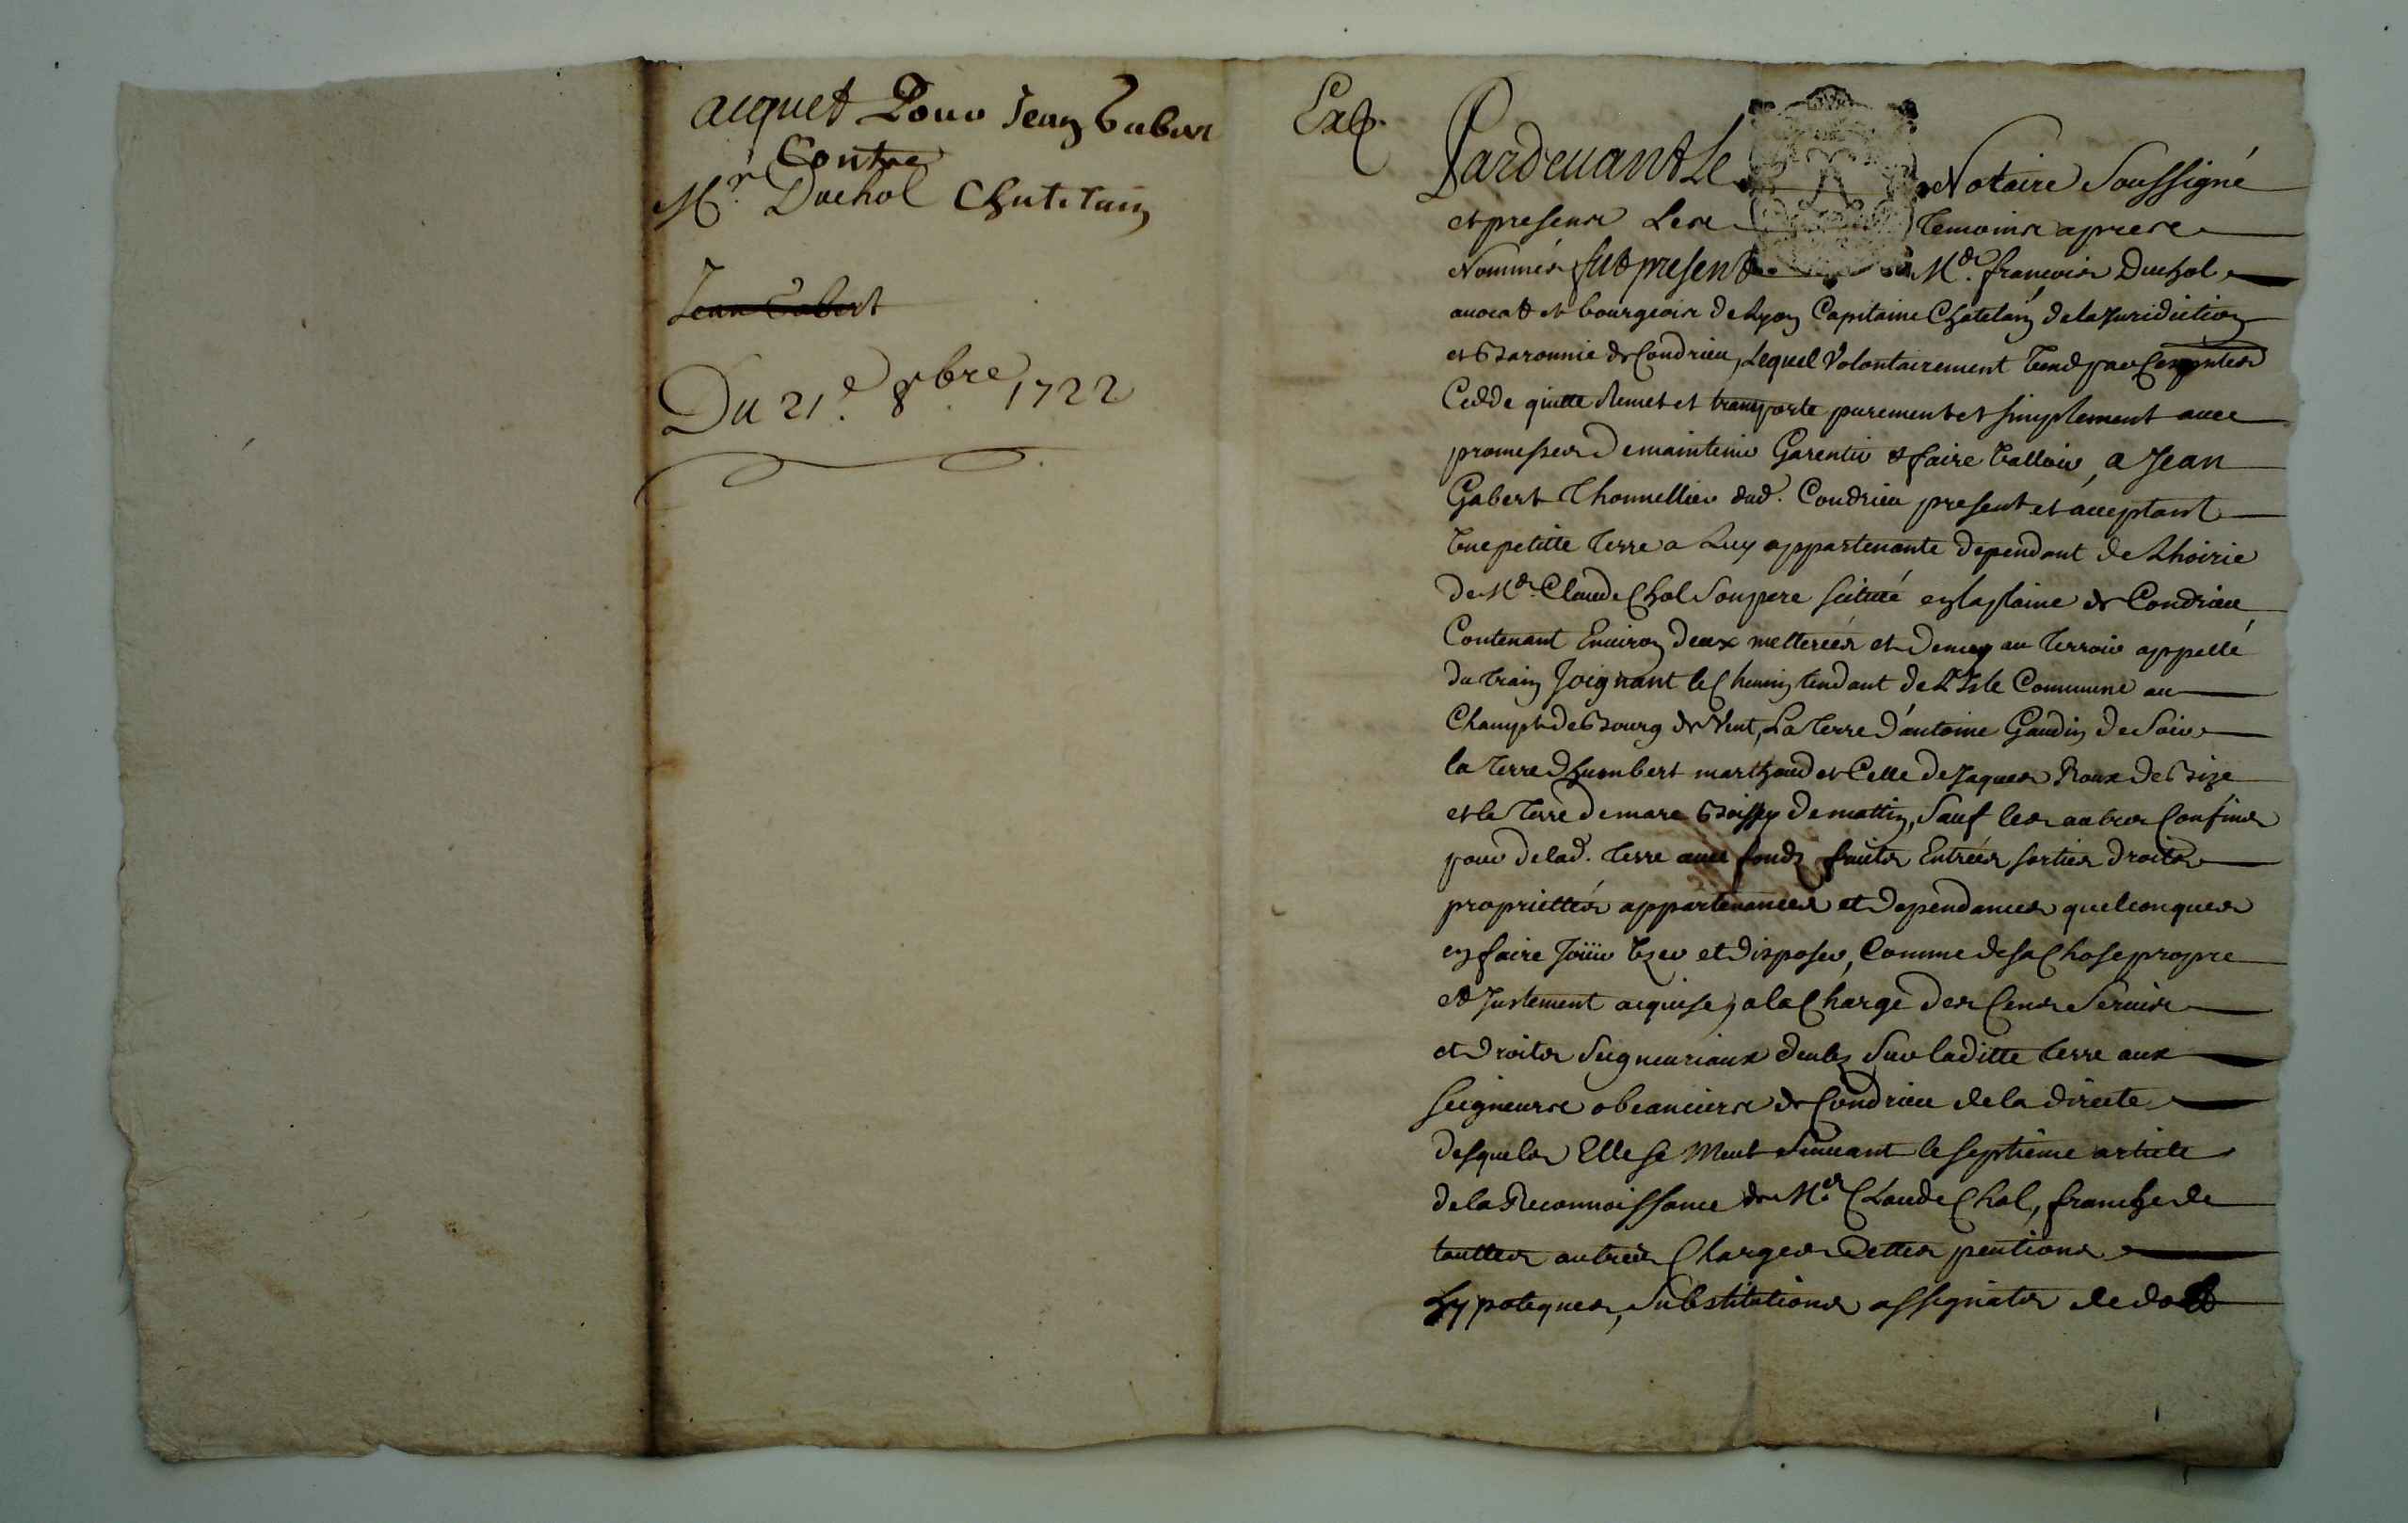 acquet Pour Jean Gabert
Contre
Mr. Duchol Chatelain
Jean Gabert
Du 21e. 8bre 1722
Pardevant Le Notaire Soussigné
et presens Les Temoins apres
Nommés fut present Me. francois Duchol
avocat et bourgeois de Lyon Capitaine Chatelain de la Juridiction
et Baronnie de Condrieu, Lequel Volontairement Vend par Ces pntes
Cedde quitte Remet et transporte purement et simplement avec
promesses De maintenir Garentir et faire Valloir, a Jean
Gabert Thonnellier dud. Condrieu present et acceptant
Une petitte Terre a Luy appartenante dependant de Lhoirie
de Me. Claude Chol Son pere scitué en la plaine de Condrieu
Contenant Environ deux metterées et Demy au Terroir appellé
du Join Joignant le Chemin tendant de L'Isle Commune au
Champt de Bourg de Vent, La Terre d'antoine Gaudin de Soir
la Terre d'humbert marthoud et Celle de Jaques Roux de Bize
et la Terre de marc Boissy de mattin, Sauf les autres Confins
pour de lad. Terre avec fonds fruits Entrées sorties droits
propriettés appartenances et dependances quelconques
en faire Joüir Vzer et disposer, Comme de sa Chose propre
et Justement acquise, a la Charge des Cens Servis
et droits Seigneuriaux deubs Sur laditte Terre aux
seigneurs obeanciers de Condrieu de la directe
desquels Elle se Meut Suivant le septieme article
de la Reconnoissance de Me. Claude Chol, franche de
touttes autres Charges Dettes pentions
hypoteques, Substitutions assignats de dot